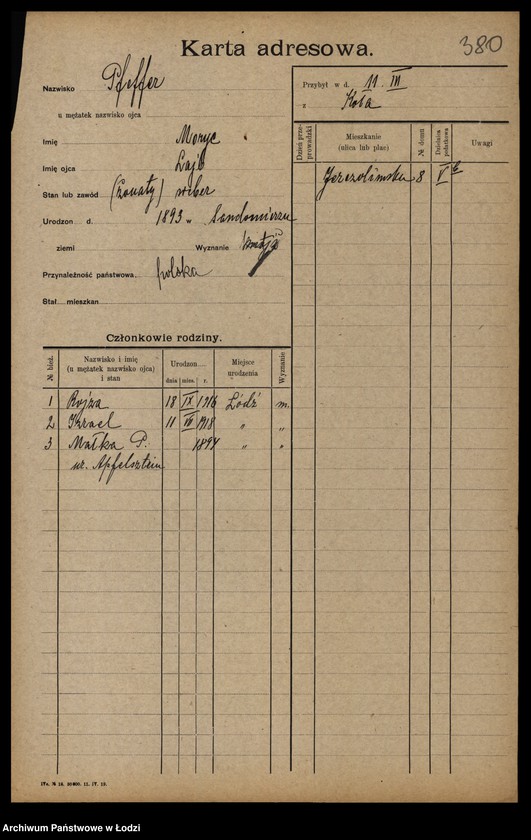 Karta adresowa.
380
Nazwisko Pfeffer
u mężatek nazwisko ojca
Imię Moryc
Imię ojca Lajb
Stan lub zawód (żonaty)
Urodzon d. 1893 w Sandomierzu
ziemi Wyznanie
Przynależność państwowa polska
Stał mieszkan
Przybył w d. 11 III
z Koła
Dzień przeprowadzki
Mieszkanie (ulica lub plac)
№ domu
Dzielnica podatkowa
Uwagi
Jerozolimska 8 V
Członkowie rodziny.
№ bież.
Nazwisko i imię (u mężatek nazwisko ojca) i stan
Urodzon
dnia mies. r.
Miejsce urodzenia
Wyznanie
1 Rojza 18 IX 1916 Łódź m.
2 Izrael 11 III 1918 " "
3 Małka P. 1894 " "
ur. Apfelsztein
Archiwum Państwowe w Łodzi